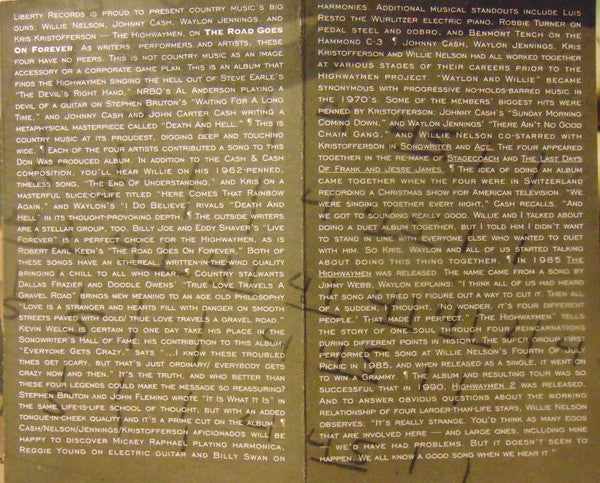 Liberty Records is proud to present country music's big
guns: Willie Nelson, Johnny Cash, Waylon Jennings, and
Kris Kristofferson — The Highwaymen, on The Road Goes
On Forever. As writers, performers and artists, these
four have no peers. This is not country music as an image
accessory or a corporate game plan. This is an album that
finds the Highwaymen singing the hell out of Steve Earle's
"The Devil's Right Hand," NRBQ's Al Anderson playing a
devil of a guitar on Stephen Bruton's "Waiting For A Long
Time," and Johnny Cash and John Carter Cash writing a
metaphysical masterpiece called "Death And Hell." ¶ This is
country music at its proudest, digging deep and touching
wide. ¶ Each of the four artists contributed a song to this
Don Was produced album. In addition to the Cash & Cash
composition, you'll hear Willie on his 1962-penned,
timeless song, "The End Of Understanding," and Kris on a
masterful slice-of-life titled "Here Comes That Rainbow
Again," and Waylon's "I Do Believe" rivals "Death And
Hell" in its thought-provoking depth. ¶ The outside writers
are a stellar group, too. Billy Joe and Eddy Shaver's "Live
Forever" is a perfect choice for the Highwaymen, as is
Robert Earl Keen's "The Road Goes On Forever." Both of
these songs have an ethereal, written-in-the-wind quality
bringing a chill to all who hear. ¶ Country stalwarts
Dallas Frazier and Doodle Owens' "True Love Travels A
Gravel Road" brings new meaning to an age old philosophy
"Love is a stranger and hearts fill with danger on smooth
streets paved with gold/ true love travels a gravel road."
Kevin Welch is certain to one day take his place in the
Songwriter's Hall of Fame; his contribution to this album,
"Everyone Gets Crazy," says "...I know these troubled
times get scary, but that's just ordinary/ everybody gets
crazy now and then." It's the truth, and who better than
these four legends could make the message so reassuring?
Stephen Bruton and John Fleming wrote "It Is What It Is" in
the same life-is-life school of thought, but with an added
tongue-in-cheek quality and it's a prime cut on the album. ¶
Cash/Nelson/Jennings/Kristofferson aficionados will be
happy to discover Mickey Raphael playing harmonica,
Reggie Young on electric guitar and Billy Swan on
harmonies. Additional musical standouts include Luis
Resto the Wurlitzer electric piano, Robbie Turner on
pedal steel and dobro, and Benmont Tench on the
Hammond C-3. ¶ Johnny Cash, Waylon Jennings, Kris
Kristofferson and Willie Nelson had all worked together
at various stages of their careers prior to the
Highwaymen project. "Waylon and Willie" became
synonymous with progressive no-holds-barred music in
the 1970's. Some of the members' biggest hits were
penned by Kristofferson: Johnny Cash's "Sunday Morning
Coming Down," and Waylon Jennings' "There Ain't No Good
Chain Gang," and Willie Nelson co-starred with
Kristofferson in Songwriter and Ace. The four appeared
together in the re-make of Stagecoach and The Last Days
Of Frank and Jesse James. ¶ The idea of doing an album
came together when the four were in Switzerland
recording a Christmas show for American television. "We
were singing together every night," Cash recalls. "And
we got to sounding really good. Willie and I talked about
doing a duet together, but I told him I didn't want
to stand in line with everyone else who wanted to duet
with him. So Kris, Waylon and all of us started talking
about doing this thing together." ¶ In 1985 The
Highwaymen was released. The name came from a song by
Jimmy Webb, Waylon explains: "I think all of us had heard
that song and tried to figure out a way to cut it. Then all
of a sudden I said 'No wonder, it's four different
people.' That made it perfect." "The Highwaymen" tells
the story of one soul through four reincarnations
during different points in history. The super group
performed the song at Willie Nelson's Fourth Of July
Picnic in 1985, and when released as a single, it went on
to win a Grammy. ¶ The album and resulting tour was so
successful that in 1990, Highwaymen 2 was released.
And to answer obvious questions about the working
relationship of four larger-than-life stars, Willie Nelson
observes: "It's really strange. You'd think as many egos
that are involved here — and large ones, including mine
— we'd have had problems. But it doesn't seem to
happen. We all know a good song when we hear it."